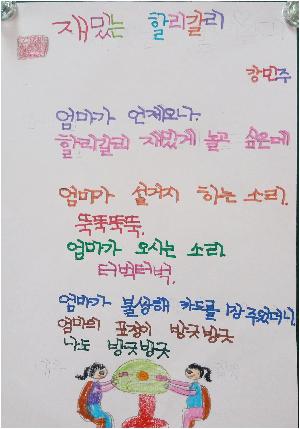 재밌는 할리갈리
강민주
엄마가 언제와나.
할리갈리 재밌게 놀고 싶은데
엄마가 설거지 하는 소리.
뚝뚝뚝뚝.
엄마가 오시는 소리
터벅터벅.
엄마가 불쌍해 카드를 1장 주었더니
엄마의 표정이 방긋방긋
나도 방긋방긋